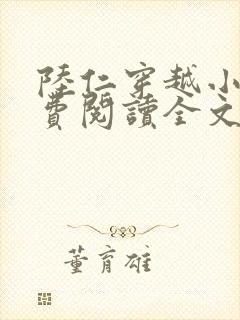 陸仁穿越小
費閱讀全文
董育雄